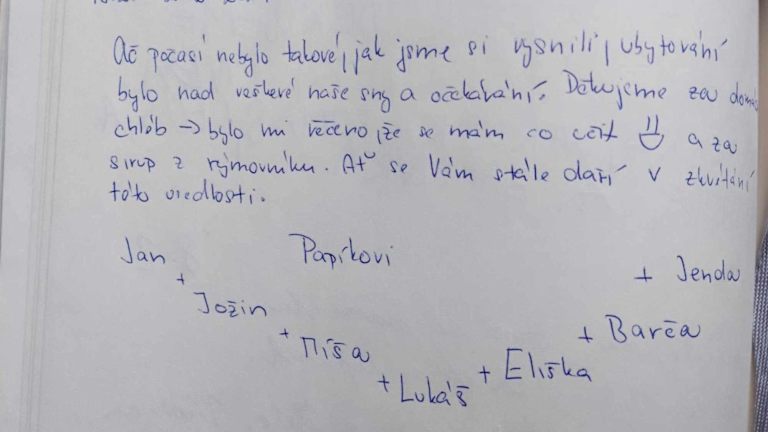 Ač počasí nebylo takové, jak jsme si vysnili, ubytování
bylo nad veškeré naše sny a očekávání. Děkujeme za domá
chléb → bylo mi řečeno, že se mám co učit a za
sirup z rýmovníku. Ať se Vám stále daří v zkvítání
této usedlosti.
Jan Papíkovi + Jenda
+ Jožin + Barča
+ Míša + Eliška
+ Lukáš